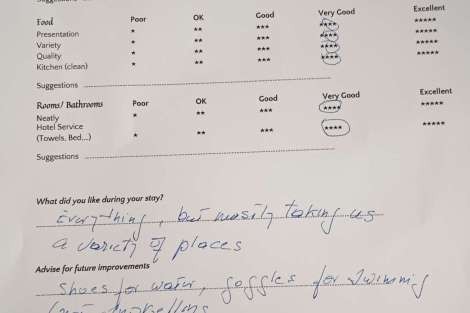 Food Poor OK Good Very Good Excellent
Presentation * ** *** **** *****
Variety * ** *** **** *****
Quality * ** *** **** *****
Kitchen (clean) * ** *** **** *****
Suggestions
Rooms/ Bathrooms Poor OK Good Very Good Excellent
Neatly * ** *** **** *****
Hotel Service
(Towels, Bed...) * ** *** **** *****
Suggestions
What did you like during your stay?
Everything, but mostly taking us
a variety of places
Advise for future improvements
Shoes for water, goggles for swimming